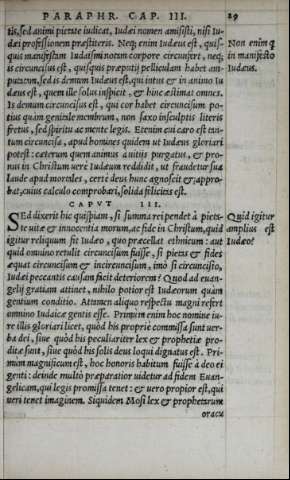 PARAPHR. CAP. III. 29
tis, sed animi pietate iudicat, Iudæi nomen amisisti, nisi Iu-
dæi professionem præstiteris. Neq; enim Iudæus est, quis-
quis manifestam Iudaismi notam corpore circunfert, neq;
is circuncisus est, quisquis præputij pelliculam habet am-
putatam, sed is demum Iudæus est, qui intus & in animo Iu
dæus est, quem ille solus inspicit, & hinc æstimat omneis.
Is demum circuncisus est, qui cor habet circuncisum po-
tius quàm genitale membrum, non saxo insculptis literis
fretus, sed spiritu ac mente legis. Etenim cui caro est tan-
tum circuncisa, apud homines quidem ut Iudæus gloriari
potest: cæterum quem animus à uitijs purgatus, & pro-
nus in Christum uerè Iudæum reddidit, ut fraudetur suæ
laude apud mortales, certè deus hunc agnoscit & appro-
bat, cuius calculo comprobari, solida felicitas est.
CAPVT III.
SEd dixerit hic quispiam, si summa rei pendet à pieta-
te uitæ & innocentia morum, ac fide in Christum, quid
igitur reliquum fit Iudæo, quo præcellat ethnicum: aut
quid omnino retulit circuncisum fuisse, si pietas & fides
æquat circuncisum & incircuncisum, imò si circuncisio,
Iudæi peccantis causam facit deteriorem? Quod ad euan-
gelij gratiam attinet, nihilo potior est Iudæorum quàm
gentium conditio. Attamen aliquo respectu magni refert
omnino Iudaicæ gentis esse. Primùm enim hoc nomine iu-
re illis gloriari licet, quòd his propriè commissa sunt uer-
ba dei, siue quòd his peculiariter lex & prophetiæ pro-
ditæ sunt, siue quòd his solis deus loqui dignatus est. Pri-
mùm magnificum est, hoc honoris habitum fuisse à deo ei
genti: deinde multò præparatior uidetur ad fidem Euan-
gelicam, qui legis promissa tenet: & uero propior est, qui
ueri tenet imaginem. Siquidem Mosi lex & prophetarum
oracu
Non enim q
in manifesto
Iudæus.
Quid igitur
amplius est
Iudæo?